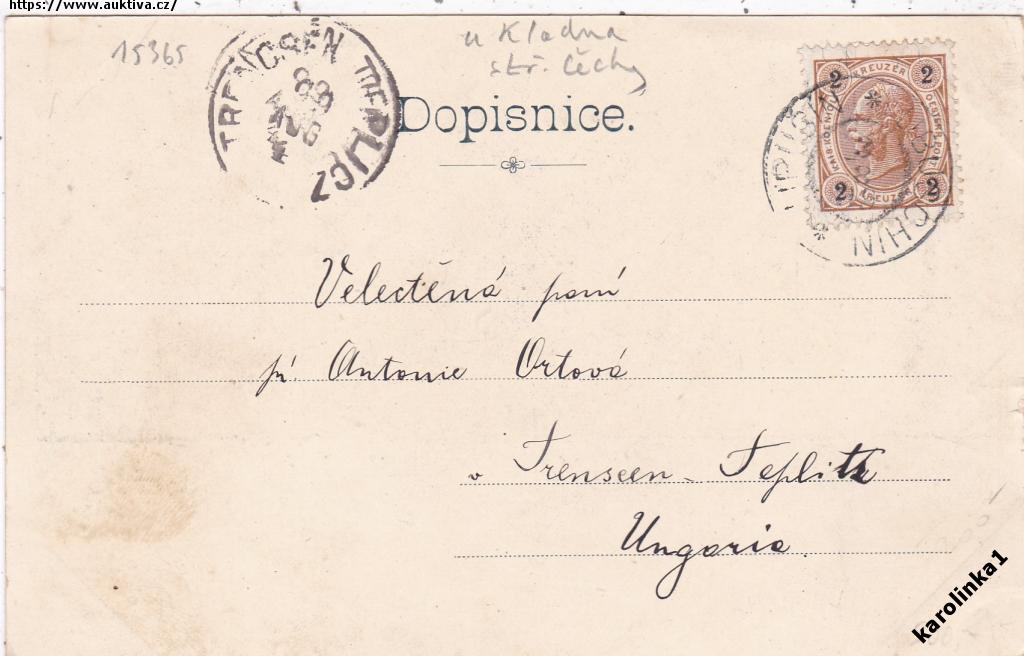 https://www.auktiva.cz/
15365
u Kladna
stř. Čechy
TRENCSÉN TEPLICZ
Dopisnice.
2 KREUZER 2
2 KREUZER 2
Velectěná paní
pí. Antonie Ortová
v Trenseen-Teplitz
Ungaria.
karolinka1